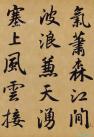 氣蕭森江間
波浪兼天湧
塞上風雲接